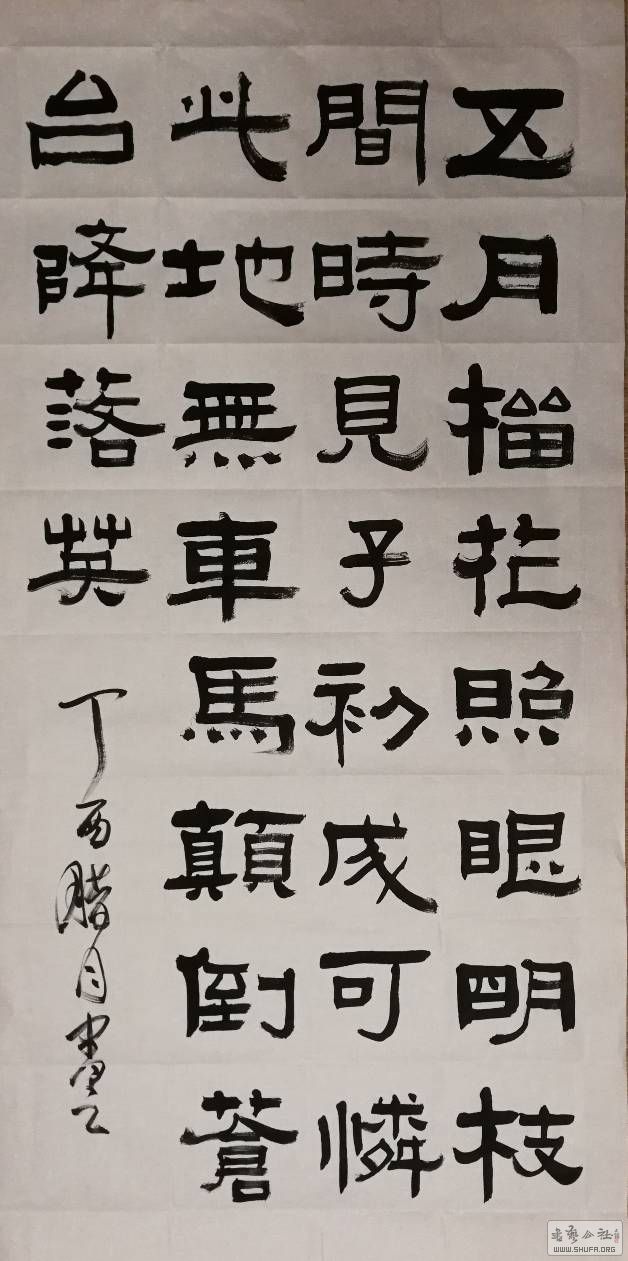 五月榴花照眼明枝
間時見子初成可憐
此地無車馬顛倒蒼
台降落英
丁酉腊月
书艺公社
WWW.SHUFA.ORG